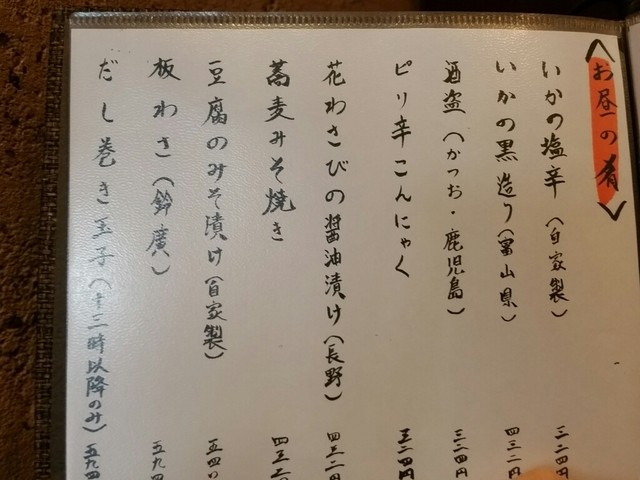 〈お昼の肴〉
いかの塩辛（自家製） 三二四円
いかの黒造り（富山県） 四三二円
酒盗（かつお・鹿児島） 三二四円
ピリ辛こんにゃく 三二四円
花わさびの醤油漬け（長野） 四三二円
蕎麦みそ焼き 四三二
豆腐のみそ漬け（自家製） 五四〇
板わさ（鈴廣） 五九四
だし巻き玉子（十三時以降のみ） 五九四